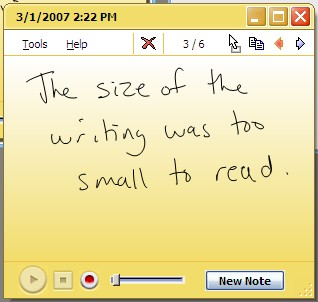 3/1/2007 2:22 PM
Tools Help 3 / 6
The size of the
writing was too
small to read.
New Note